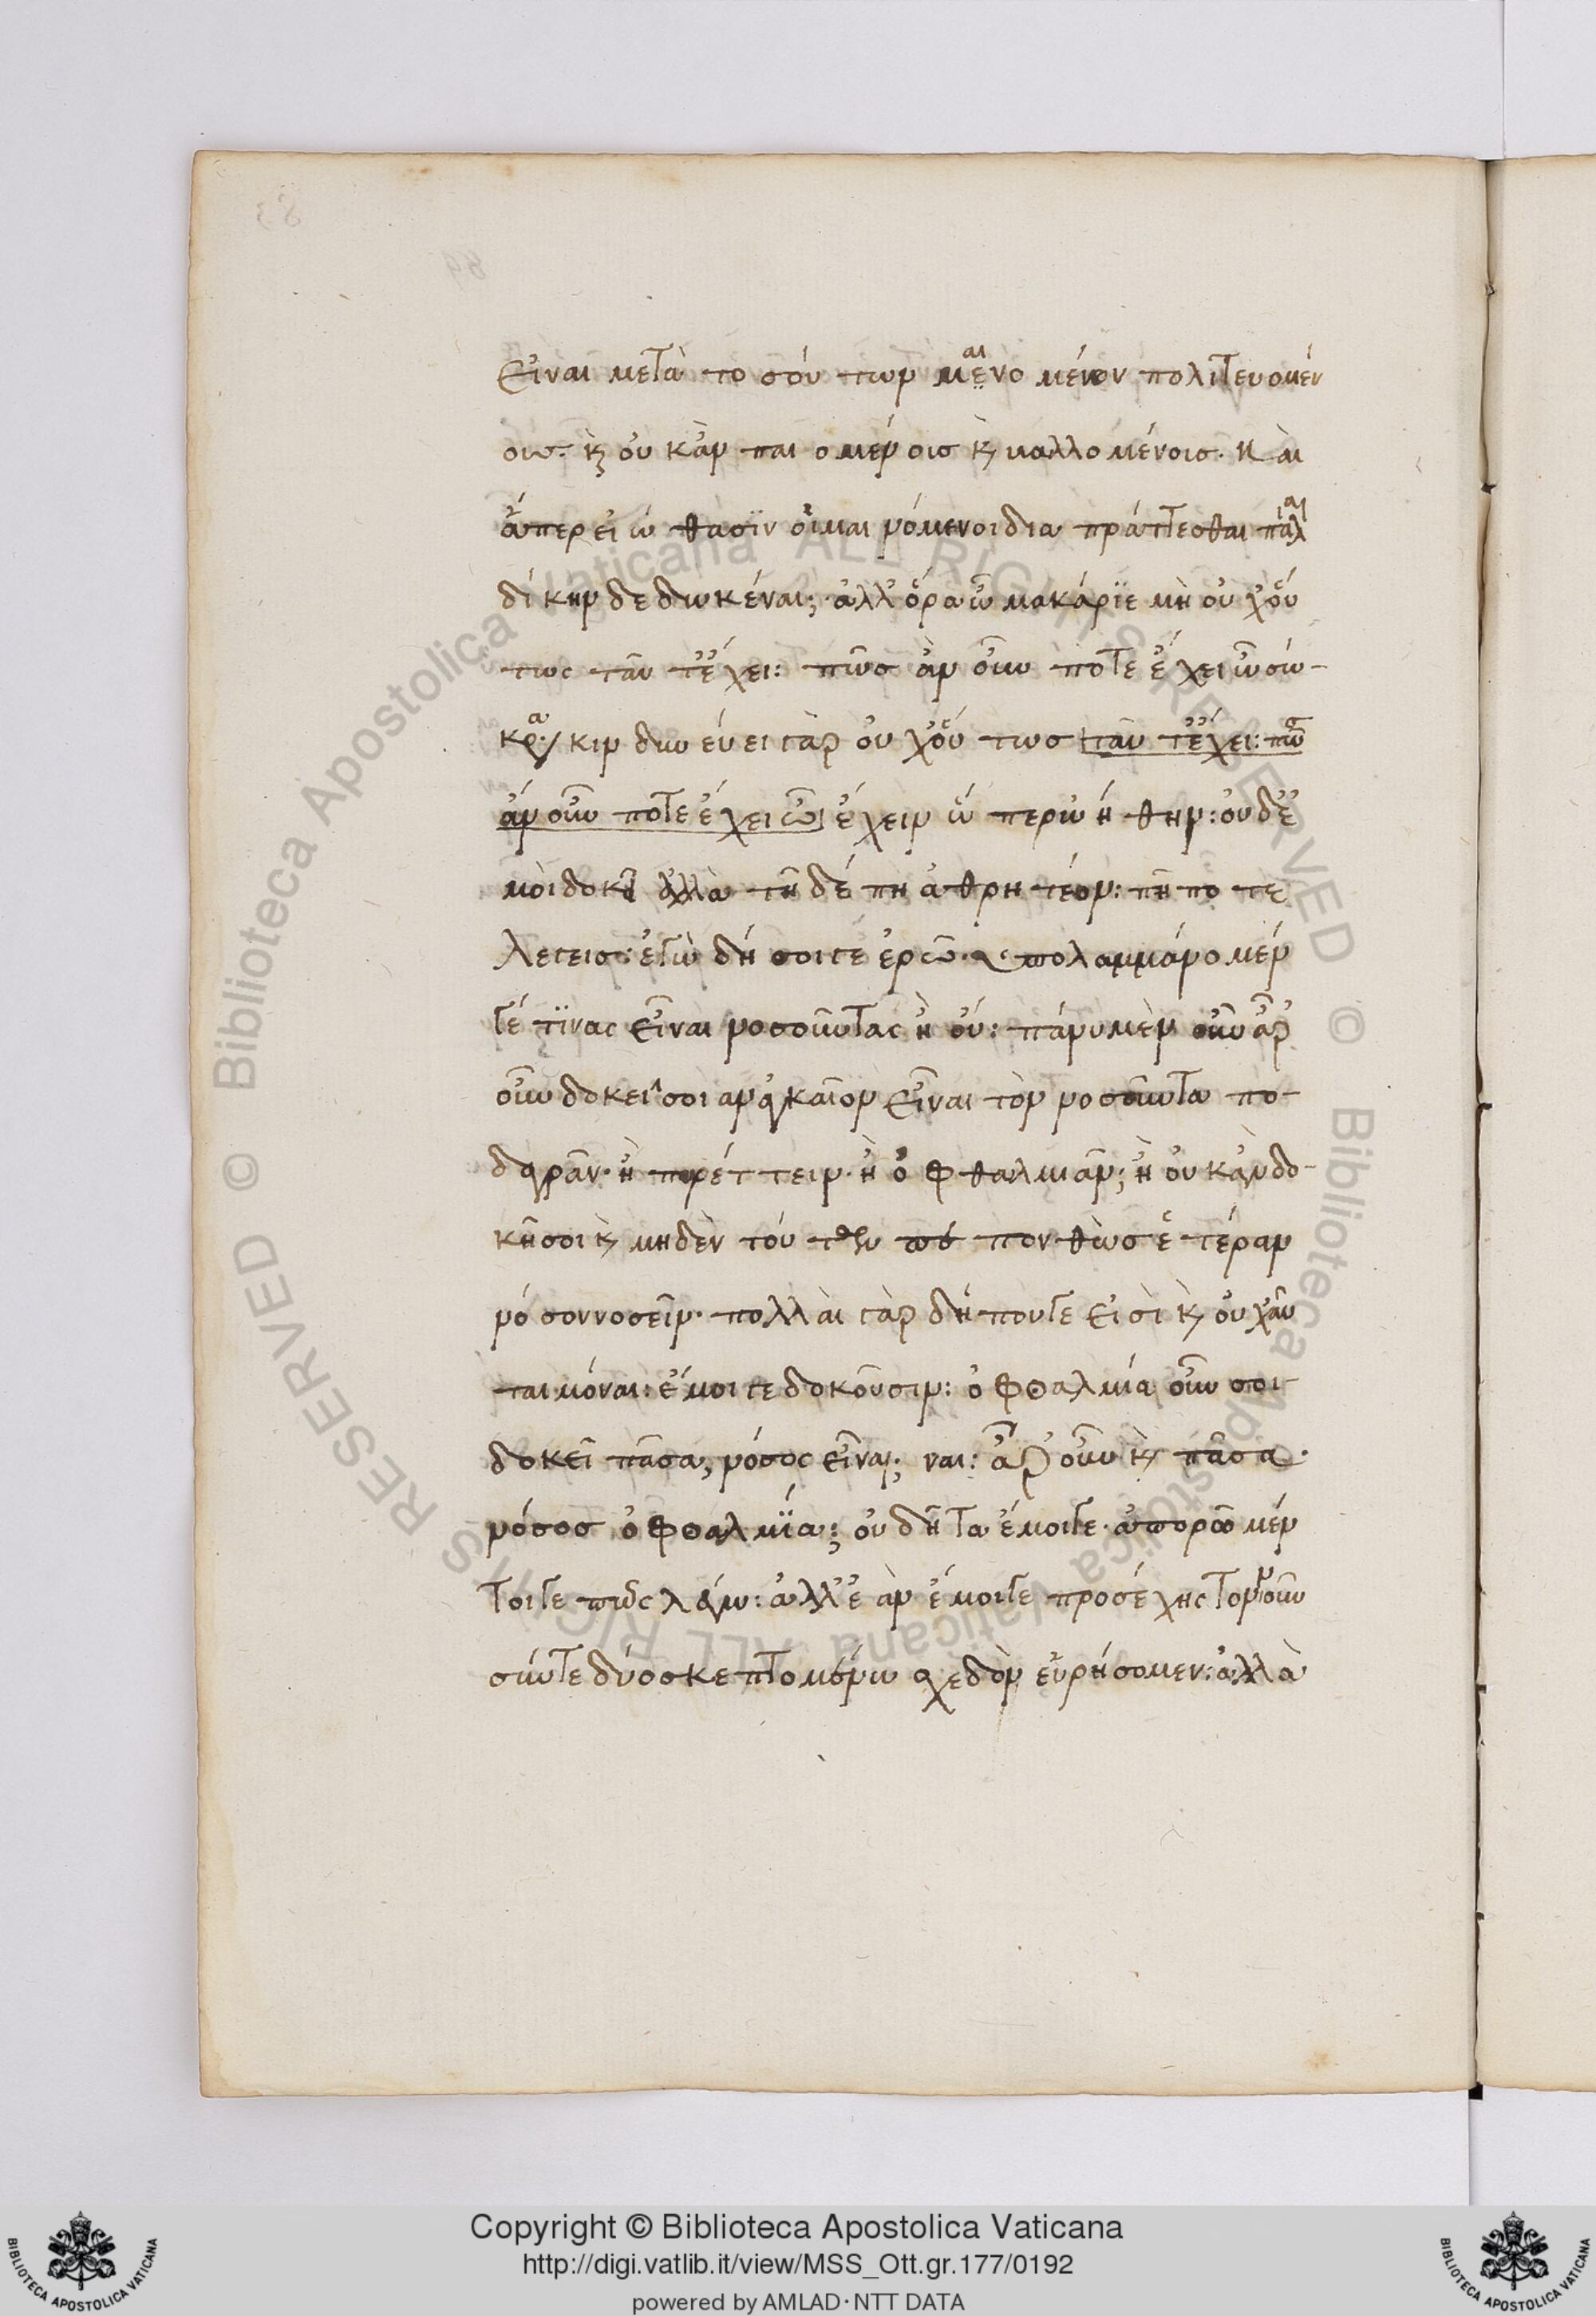 εἶναι μετὰ τοσούτων μαινομένον πολιτευομέν
οις. καὶ οὐκ ἂν παιομένοις καὶ βαλλομένοις. καὶ
ἅπερ εἰώθασϊν οἱ μαινόμενοι διαπράττεσθαι πάλαι
δίκην δεδωκέναι; ἀλλ' ὅρα ὦ μακάρϊε μὴ οὐχ οὕ
τως ταῦτ' ἔχει: πῶς ἂν οὖν ποτε ἔχει ὦ σώ-
κρα. κινδυνεύει γὰρ οὐχ οὕτως ταῦτ' ἔχει: πῶς
ἂν οὖν ποτε ἔχει ὦ ἔχειν ὥπερ ὠήθην: οὐδ' ἐ
μοὶ δοκεῖ ἀλλὰ τῆδέ πη ἀθρητέον: πῆ ποτε
λέγεις: ἐγὼ δή σοι γε ἐρῶ. ὑπολαμβάνομέν
γέ τϊνας εἶναι νοσοῦντας ἢ οὔ: πάνυ μὲν οὖν ἆρ'
οὖν δοκεῖ σοι ἀναγκαῖον εἶναι τὸν νοσοῦντα πο-
δαγρᾶν. ἢ πυρέττειν. ἢ ὀφθαλμιᾶν; ἢ οὐκ ἂν δο-
κῆ σοι καὶ μηδὲν τούτων πεπονθὼς ἑτέραν
νόσον νοσεῖν. πολλαὶ γὰρ δήπου γε εἰσὶ καὶ οὐχ αὗ
ται μόναι: ἔμοιγε δοκοῦσιν: ὀφθαλμία οὖν σοι
δοκεῖ πᾶσα, νόσος εἶναι; ναι: ἆρ' οὖν καὶ πᾶσα.
νόσος ὀφθαλμϊα; οὐ δῆτα ἔμοιγε. ἀπορῶ μέν
τοι γε πῶς λέγω: ἀλλ' ἐὰν ἔμοιγε προσέχης τὸν νοῦν
σύν τε δύο σκεπτομένω σχεδὸν εὑρήσομεν: ἀλλὰ
Copyright © Biblioteca Apostolica Vaticana
http://digi.vatlib.it/view/MSS_Ott.gr.177/0192
powered by AMLAD·NTT DATA